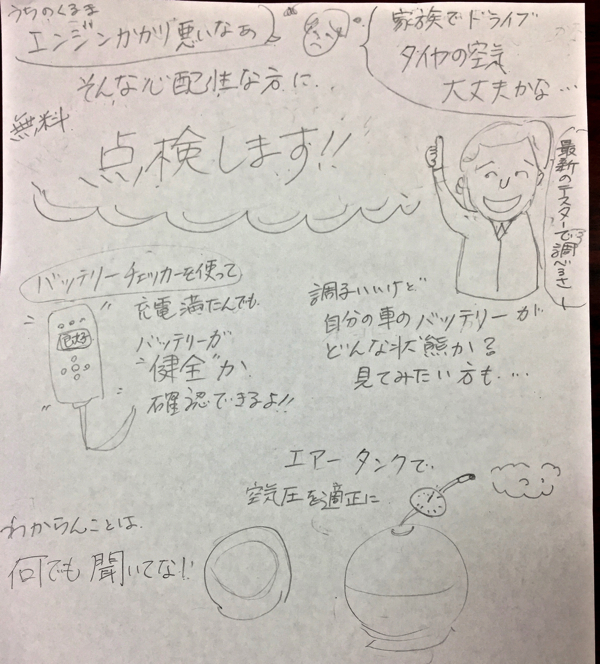 うちのくるま
エンジンかかり悪いなぁ
家族でドライブ
タイヤの空気
大丈夫かな…
そんな心配性な方に
無料
点検します!!
最新のテスターで調べるさー
バッテリーチェッカーを使って
充電満たんでも
バッテリーが
"健全"か
確認できるよ!!
良好
調子いいけど
自分の車のバッテリーが
どんな状態か?
見てみたい方も…
エアータンクで
空気圧を適正に
わからんことは
何でも聞いてな!!